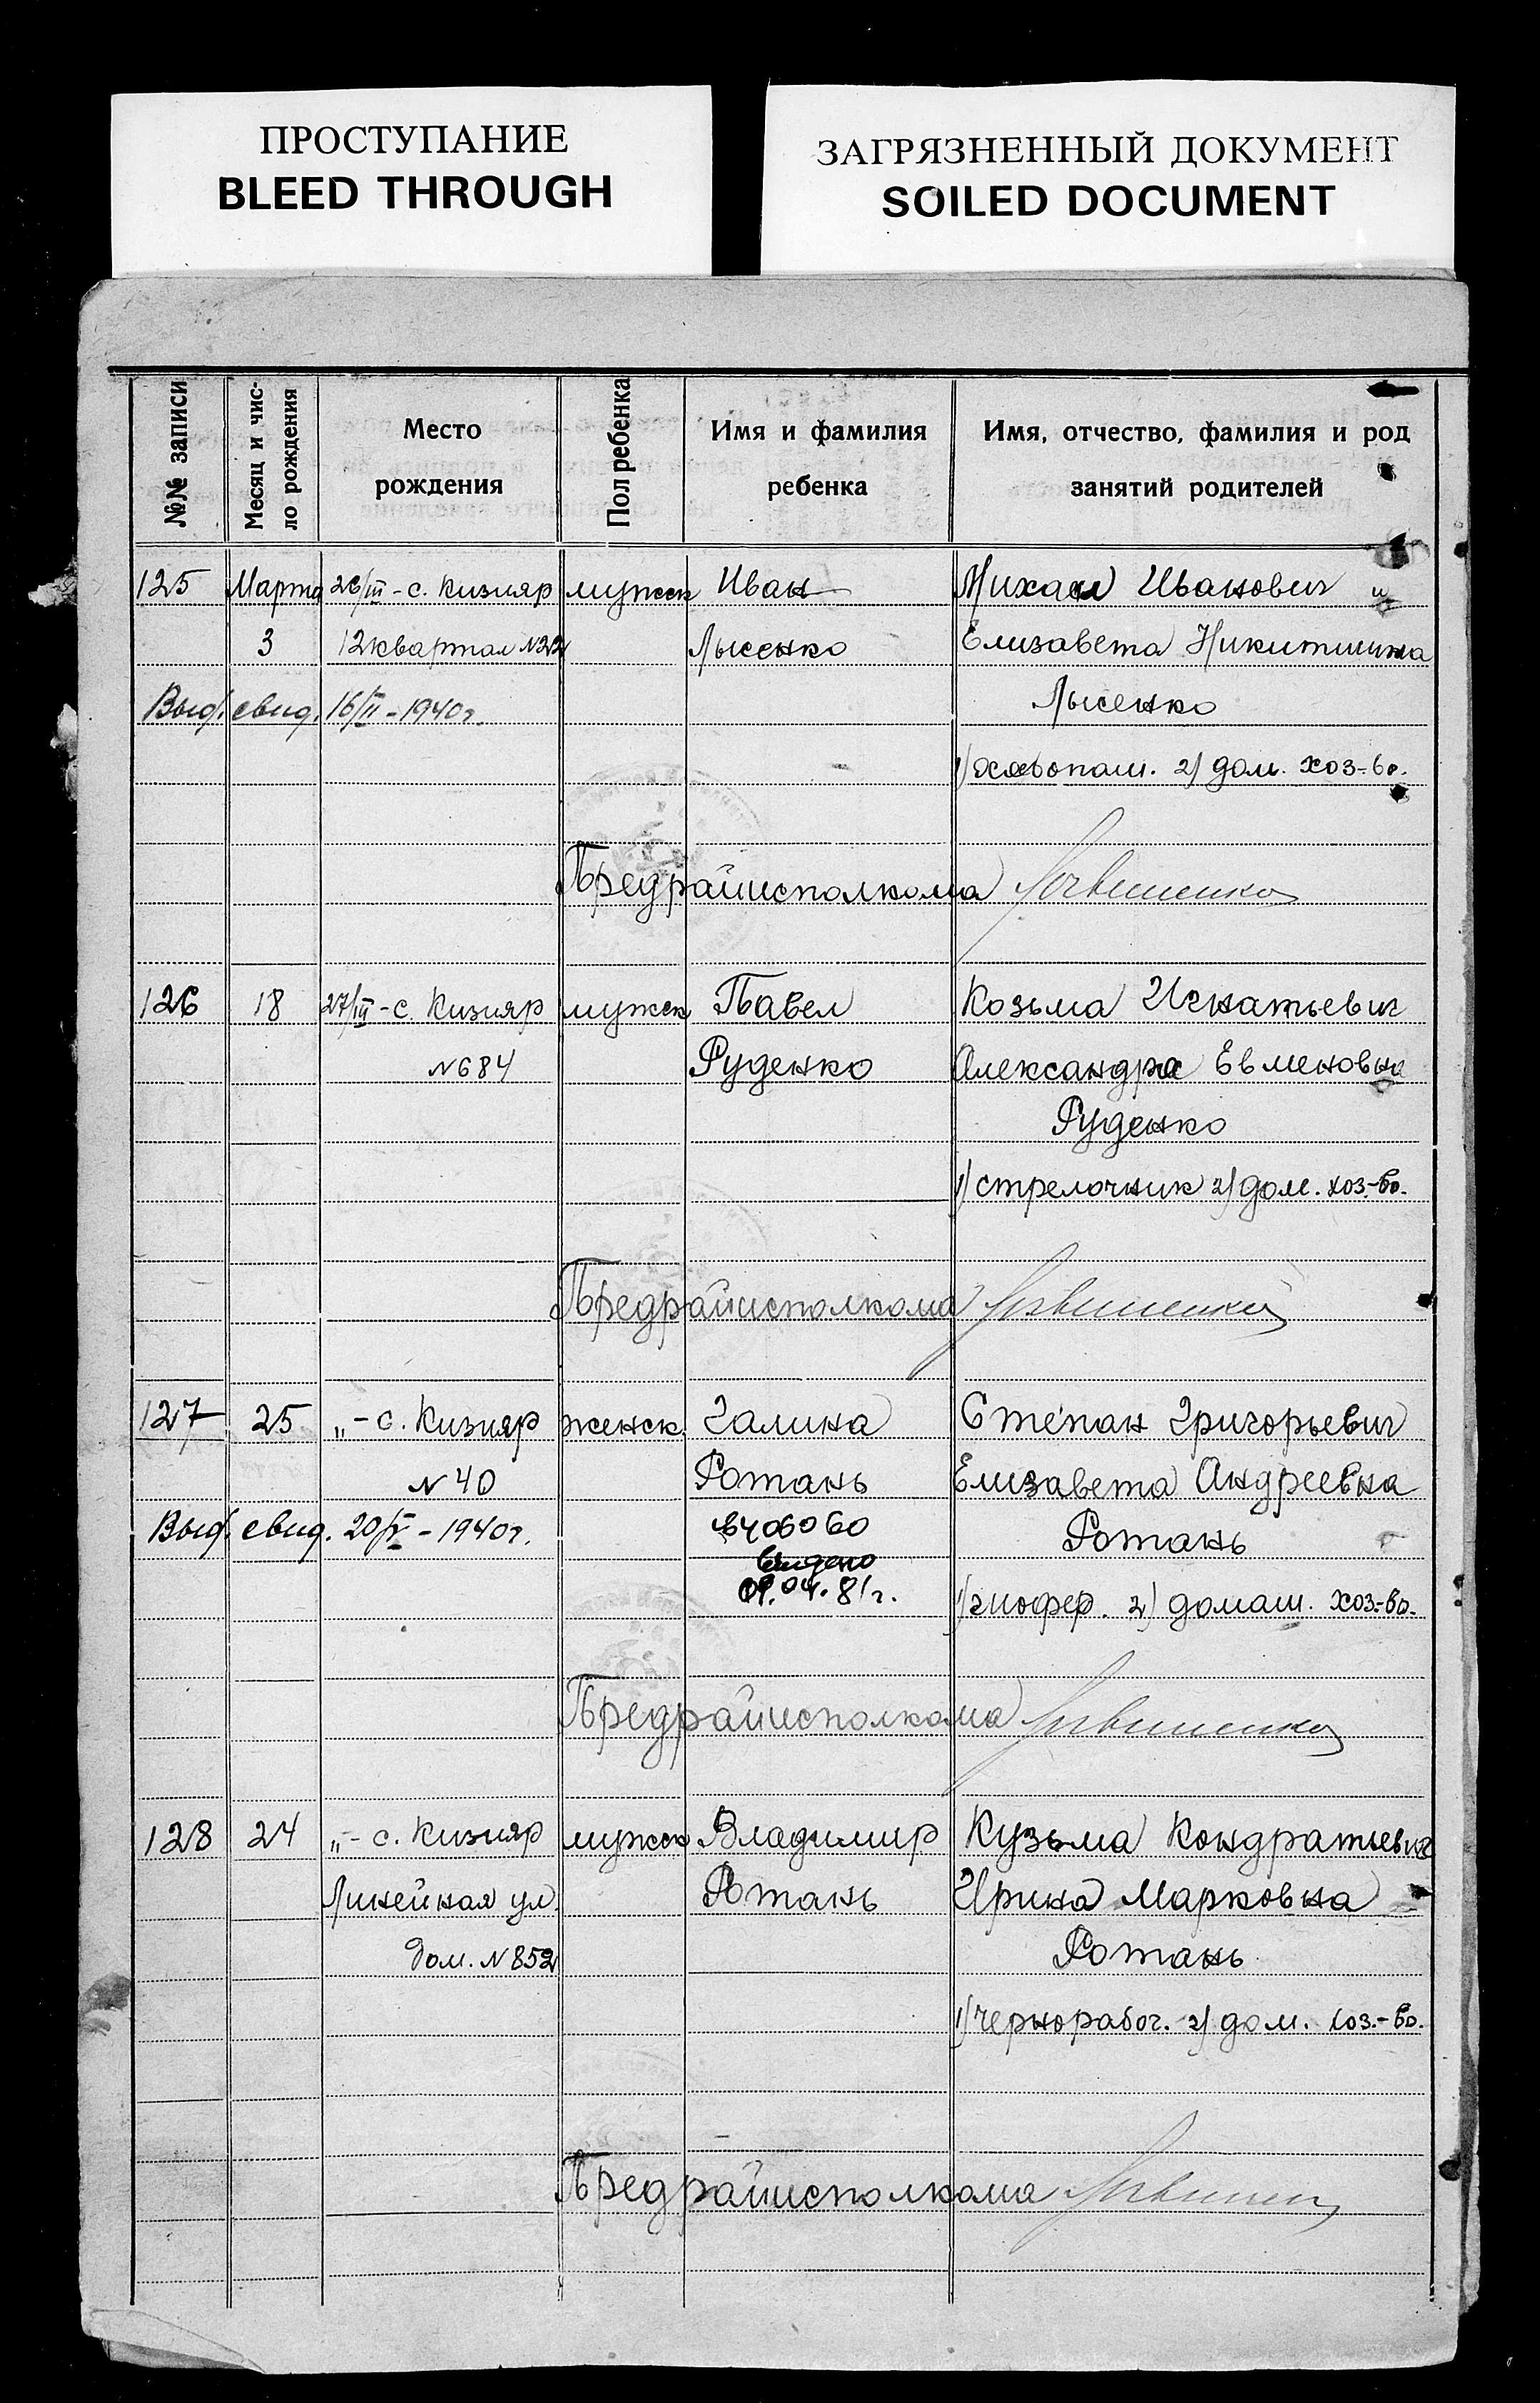 ПРОСТУПАНИЕ
BLEED THROUGH
ЗАГРЯЗНЕННЫЙ ДОКУМЕНТ
SOILED DOCUMENT
№№ записи
Месяц и чис-
ло рождения
Место
рождения
Пол ребенка
Имя и фамилия
ребенка
Имя, отчество, фамилия и род
занятий родителей
125 Марта 26/III - с. Кизияр мужск Иван Михаил Иванович и
3 12 квартал №22 Лысенко Елизавета Никитишна
Выд. свид. 16/II - 1940г. Лысенко
1) хлебопаш. 2) дом. хоз-во.
Предрайисполкома
126 18 27/III - с. Кизияр мужск Павел Козьма Игнатьевич
№684 Руденко Александра Евменовна
Руденко
1) стрелочник 2) дом. хоз-во.
Предрайисполкома
127 25 „ - с. Кизияр женск. Галина Степан Григорьевич
№ 40 Ротань Елизавета Андреевна
Выд. свид. 20/V - 1940г. Ротань
04.81г.
1) шофер. 2) домаш. хоз-во.
Предрайисполкома
128 24 „ - с. Кизияр мужск Владимир Кузьма Кондратьевич
Линейная ул. Ротань Ирина Марковна
дом. №852 Ротань
1) чернорабоч. 2) дом. хоз.-во.
Предрайисполкома